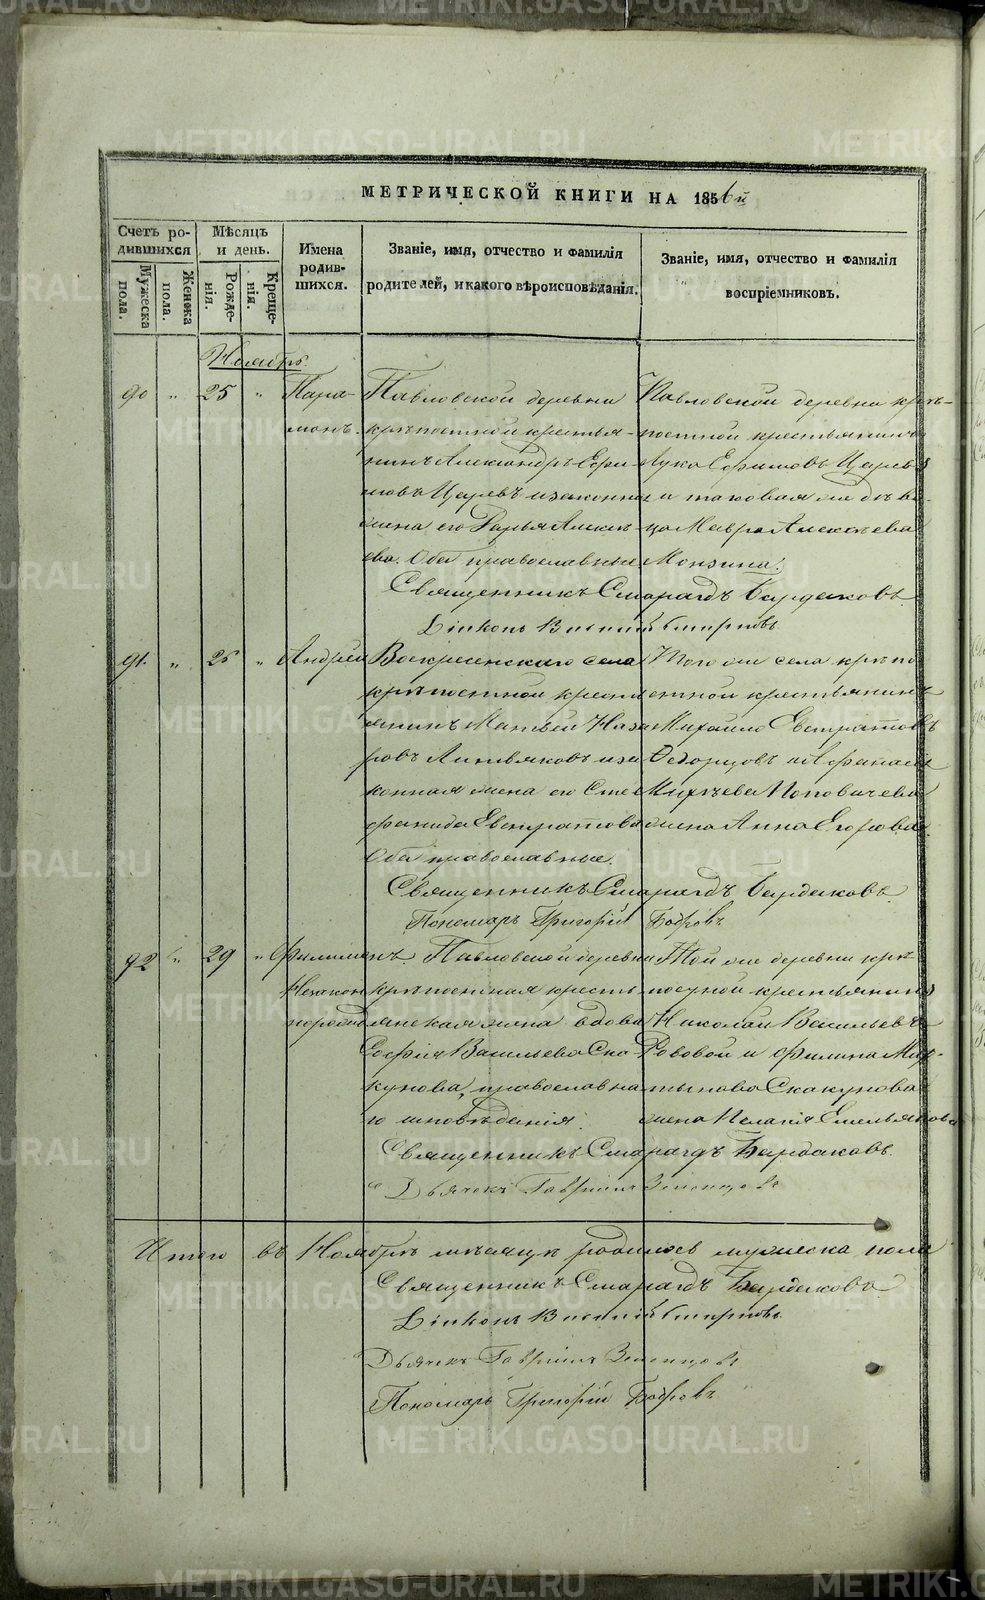 МЕТРИЧЕСКОЙ КНИГИ НА 1856й
Счетъ ро-
дившихся
Мужеска
пола.
Женска
пола.
Мѣсяцъ
и день.
Рожде-
нія.
Креще-
нія.
Имена
родив-
шихся.
Званіе, имя, отчество и фамилія
родителей, и какого вѣроисповѣданія.
Званіе, имя, отчество и фамилія
воспріемниковъ.
Ноябрь.
90 " 25 "
Пара-
монъ.
Павловской деревни
крѣпостной крестья-
нинъ Александръ Ефи-
мовъ Царевъ и законная
жена его Дарья Алексѣ-
ева. Оба православные
Павловской деревни крѣ-
постной крестьянинъ
Лука Ефимовъ Царевъ
и таковая же дѣви-
ца Мавра Алексѣева
Священникъ Смарагдъ Бардаковъ.
Діаконъ Смирновъ
91. " 25 "
Андрей
Воскресенскаго села
крѣпостной крест-
янинъ Матвей Наза-
ровъ и за-
конная жена его Сте-
фанида Евстратова
Оба православные.
Того же села крѣпо-
стной крестьянинъ
Михайло Евстратовъ
жена Анна Егорова.
Священникъ Смарагдъ Бардаковъ.
Пономарь Григорій Бобровъ
92 " 29 "
Филимонъ.
Незакон
порожд
Павловской деревни
крѣпостная кресть-
янская жена вдова
Софія Васильева Ска-
кунова, православна-
го исповѣденія.
Той же деревни крѣ-
постной крестьянинъ
Николай Васильевъ
и Филипа Мар-
тынова Скакунова
жена Пелагія Емельянова
Священникъ Смарагдъ Бардаковъ.
Дьячекъ Гавриилъ
Итого въ Ноябрѣ мѣсяцѣ родилось мужеска пола
Священникъ Смарагдъ Бардаковъ
Діаконъ Смирновъ.
Дьячекъ Гавриилъ
Пономарь Григорій Бобровъ
METRIKI.GASO-URAL.RU